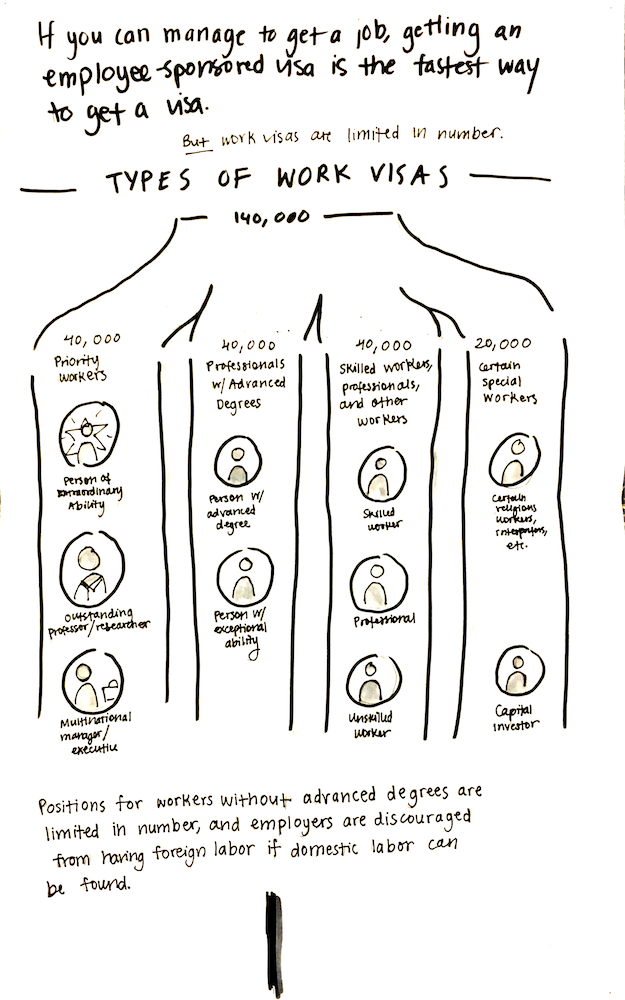 If you can manage to get a job, getting an
employee-sponsored visa is the fastest way
to get a visa.
But work visas are limited in number.
TYPES OF WORK VISAS
140,000
40,000
Priority
workers
Person of
Extraordinary
Ability
Outstanding
professor/researcher
Multinational
manager/
executive
40,000
Professionals
w/ Advanced
Degrees
Person w/
advanced
degree
Person w/
exceptional
ability
40,000
Skilled workers,
professionals,
and other
workers
Skilled
worker
Professional
Unskilled
worker
20,000
Certain
special
workers
Certain
religious
workers,
interpreters,
etc.
Capital
investor
Positions for workers without advanced degrees are
limited in number, and employers are discouraged
from having foreign labor if domestic labor can
be found.